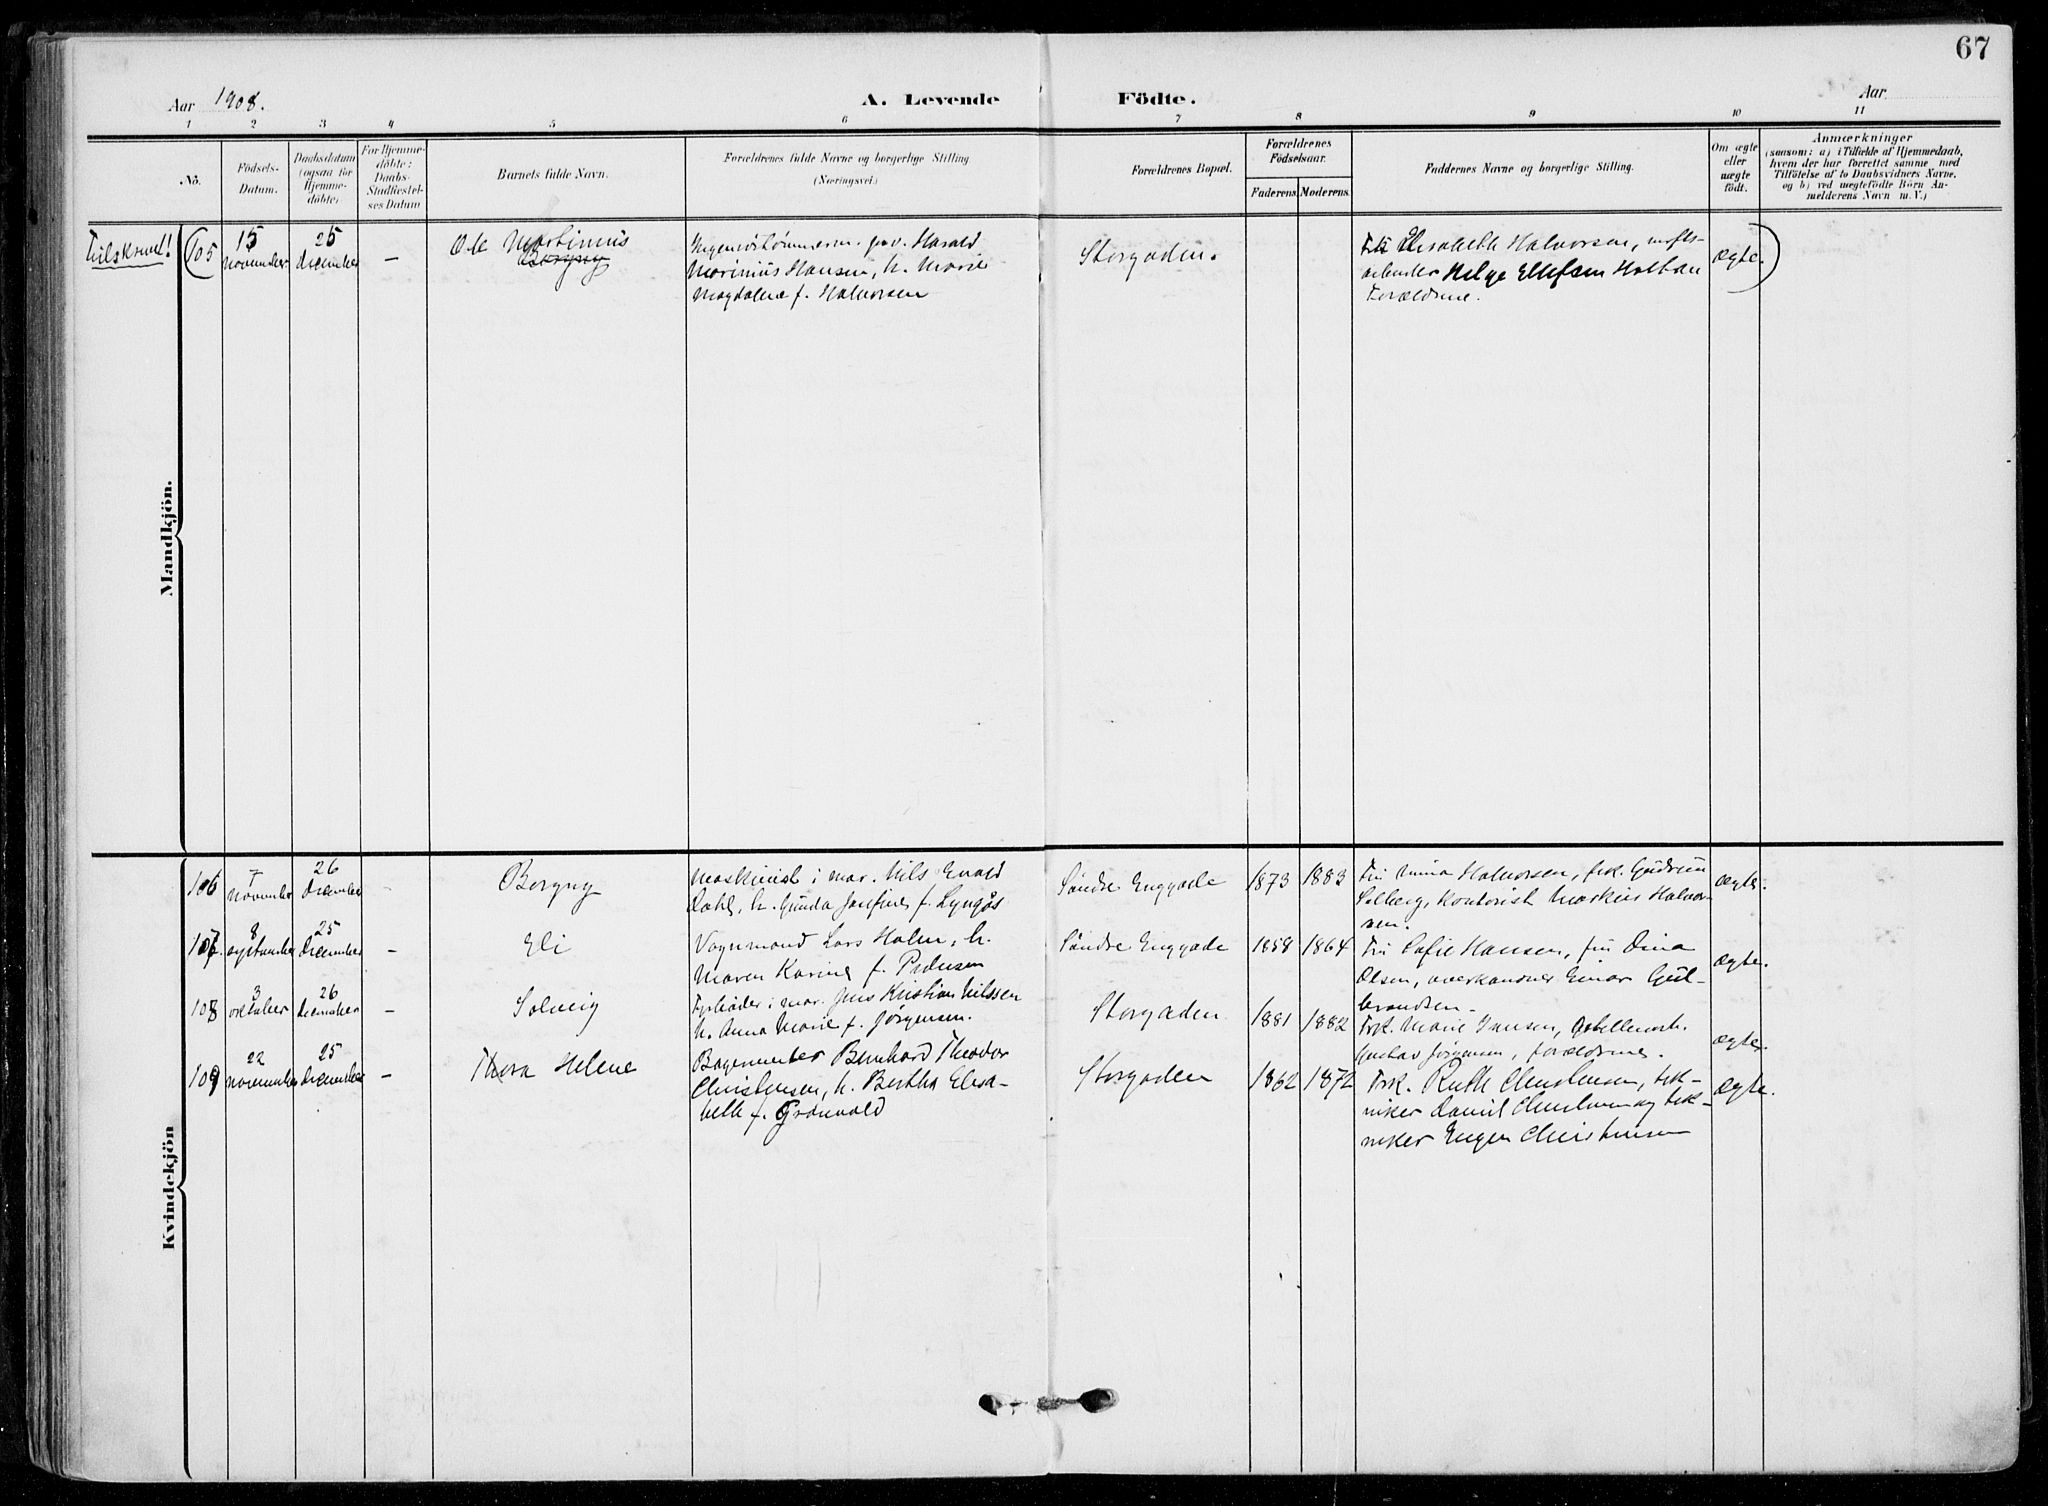 67
Aar 1908.
A. Levende Födte.
Aar
1 2 3 4 5 6 7 8 9 10 11
No.
Födsels-
Datum.
Daabsdatum
(ogsaa for
Hjemme-
döbte)
For Hjemme-
döbte:
Daabs-
Stadfæstel-
ses Datum
Barnets fulde Navn.
Forældrenes fulde Navne og borgerlige Stilling
(Næringsvei.)
Forældrenes Bopæl.
Forældrenes
Födselsaar.
Faderens.
Moderens.
Faddernes Navne og borgerlige Stilling.
Om ægte
eller
uægte
födt.
Anmærkninger
(saasom: a) i Tilfælde af Hjemmedaab,
hvem der har forrettet samme med
Tilföielse af to Daabsvidners Navne,
og b) ved uægtefödte Börn An-
melderens Navn m. V.)
Mandkjön.
Tilskrevet!
(105
15
november
25
december
–
Ole Martinius
Borgny
Harald
Marinius Hansen, h. Marie
Magdalene f. Halvorsen
Storgaden.
Elisabeth Halvorsen,
arbeider Helge Ellefsen Holtan
Forældrene.
Ægte.)
Kvindekjön
106
7
november
26
december
–
Borgny
Maskinist i mar. Nils Evald
Dahl, h. Gunda Josefine f. Lyngås
Søndre Enggade
1873
1883
Fru Anna Halvorsen, frk. Gudrun
Solberg, kontorist Markus Halvor-
sen.
Ægte.
107.
8
september
25
december
–
Eli
Vognmand Lars Holm, h.
Maren Karine f. Pedersen
Søndre Enggade
1858
1864
Fru Sofie Hansen, fru Dina
Olsen, overkanoner Einar Gul-
brandsen.
Ægte.
108
3
oktober
26
december
–
Solveig
Fyrbøder i mar. Jens Kristian Nilssen
h. Anna Marie f. Jørgensen.
Storgaden
1881
1882
Frk. Marie Jensen,
Gustav Jørgensen, forældrene.
Ægte.
109
22
november
25
december
–
Thora Helene
Bagermester Bernhard Theodor
Christensen, h. Bertha Elisa-
beth f. Grønvold
Storgaden
1862
1872
Frk. Ruth Christensen, tek-
niker Daniel Christensen og tek-
niker Eugen Christensen
Ægte.